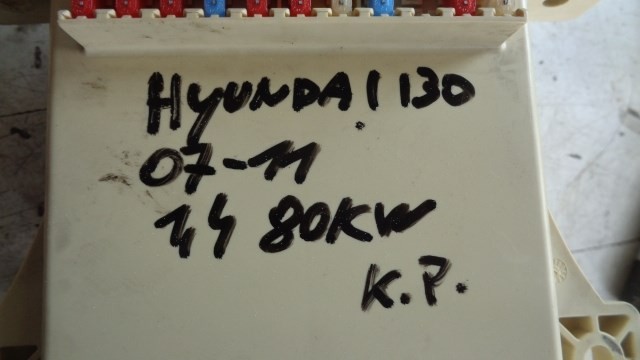 HYUNDAI I30
07-11
1,4 80KW
K.P.